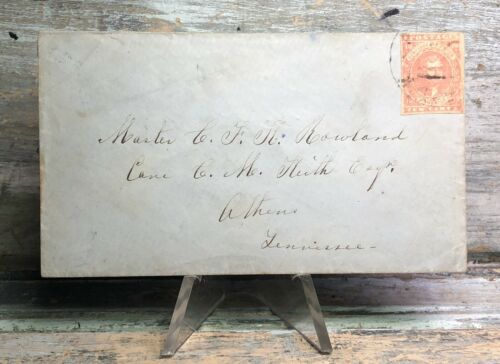 POSTAGE
Master C. F. K. Rowland
Care C. M. Keith Esqr.
Athens
Tennessee